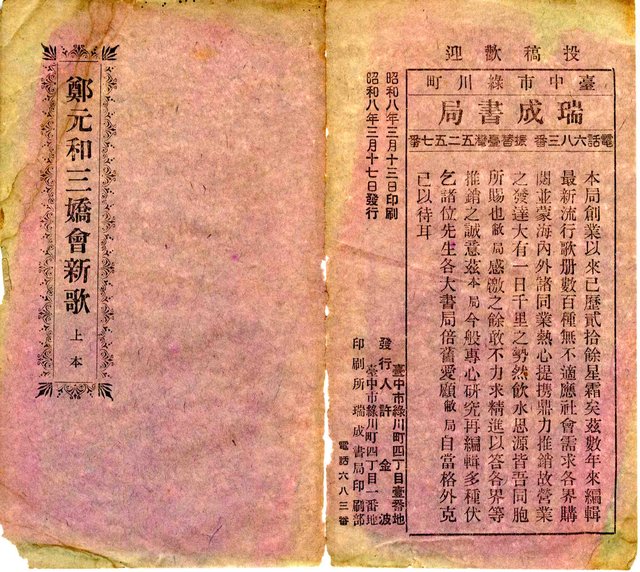 投稿歡迎
臺中市綠川町
瑞成書局
電話六八三番 振替臺灣五二五七番
本局創業以來已歷貳拾餘星霜矣茲數年來編輯
最新流行歌册數百種無不適應社會需求各界購
閱並蒙海內外諸同業熱心提携鼎力推銷故營業
之發達大有一日千里之勢然飲水思源皆吾同胞
所賜也敝局感激之餘敢不力求精進以答各界等
推銷之誠意茲本局今般專心硏究再編輯多種伏
乞諸位先生各大書局倍舊愛顧敝局自當格外克
已以待耳
昭和八年三月十三日印刷
昭和八年三月十七日發行
臺中市綠川町四丁目壹番地
發行人許金波
臺中市綠川町四丁目一番地
印刷所瑞成書局印刷部
電話六八三番
鄭元和三嬌會新歌 上本